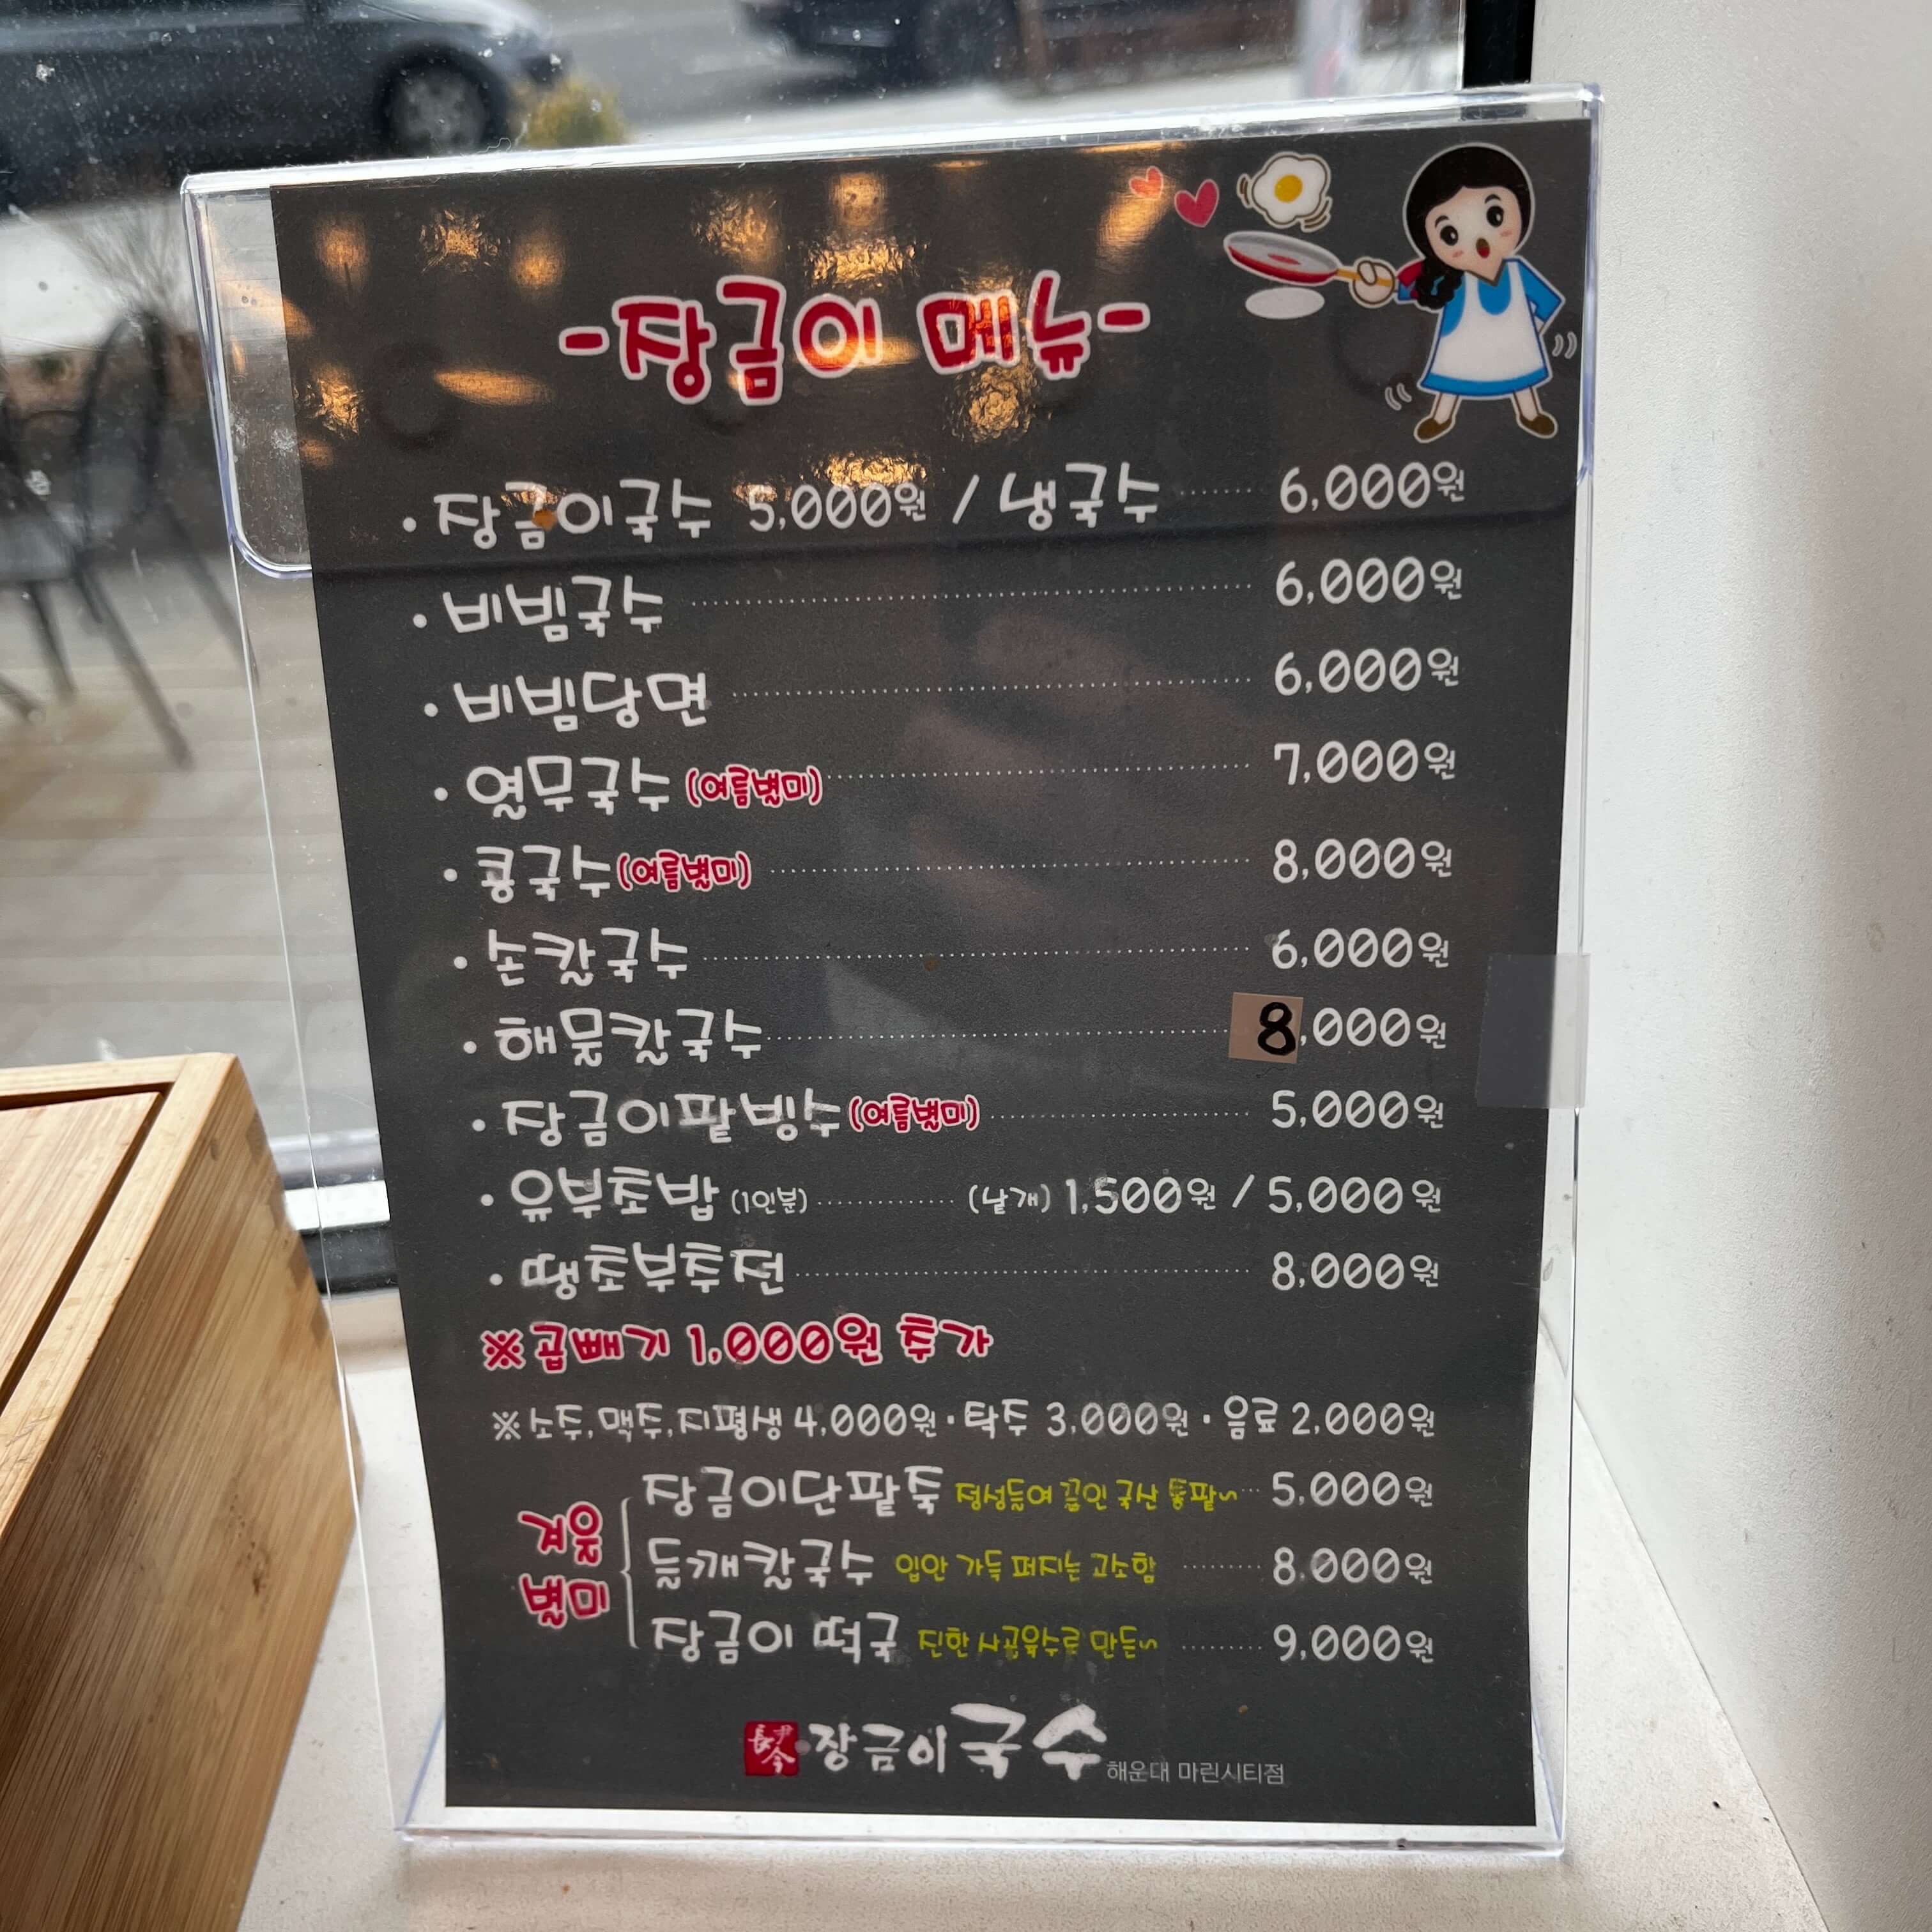 -장금이 메뉴-
• 장금이국수 5,000원 / 냉국수 6,000원
• 비빔국수 6,000원
• 비빔당면 6,000원
• 열무국수 (여름별미) 7,000원
• 콩국수 (여름별미) 8,000원
• 손칼국수 6,000원
• 해물칼국수 8,000원
• 장금이팥빙수 (여름별미) 5,000원
• 유부초밥 (1인분) (낱개) 1,500원 / 5,000원
• 땡초부추전 8,000원
※곱빼기 1,000원 추가
※소주,맥주,지평생 4,000원 · 탁주 3,000원 · 음료 2,000원
겨울
별미
장금이단팥죽 정성들여 끓인 국산 통팥~ 5,000원
들깨칼국수 입안 가득 퍼지는 고소함 8,000원
장금이 떡국 진한 사골육수로 만든~ 9,000원
장금이국수 해운대 마린시티점